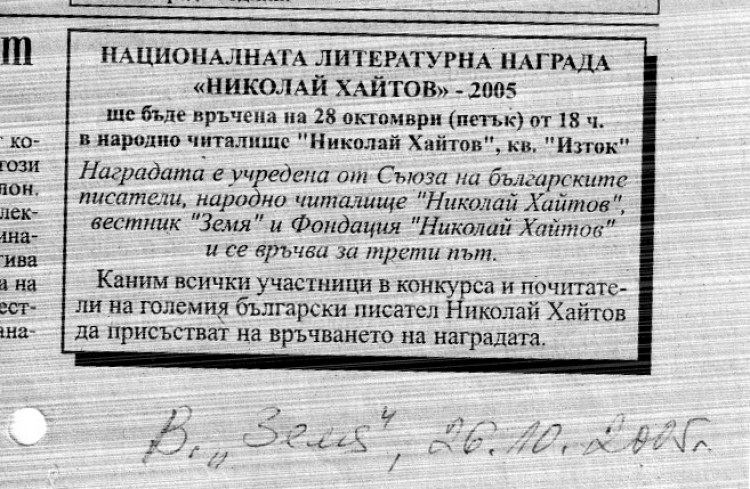 т
НАЦИОНАЛНАТА ЛИТЕРАТУРНА НАГРАДА
«НИКОЛАЙ ХАЙТОВ» - 2005
ще бъде връчена на 28 октомври (петък) от 18 ч.
в народно читалище "Николай Хайтов", кв. "Изток"
Наградата е учредена от Съюза на българските
писатели, народно читалище "Николай Хайтов",
вестник "Земя" и Фондация "Николай Хайтов"
и се връчва за трети път.
Каним всички участници в конкурса и почитате-
ли на големия български писател Николай Хайтов
да присъстват на връчването на наградата.
ко-
този
лон.
лек-
ина-
тива
а на
ест-
ана-
В. „Земя“, 26.10.2005г.